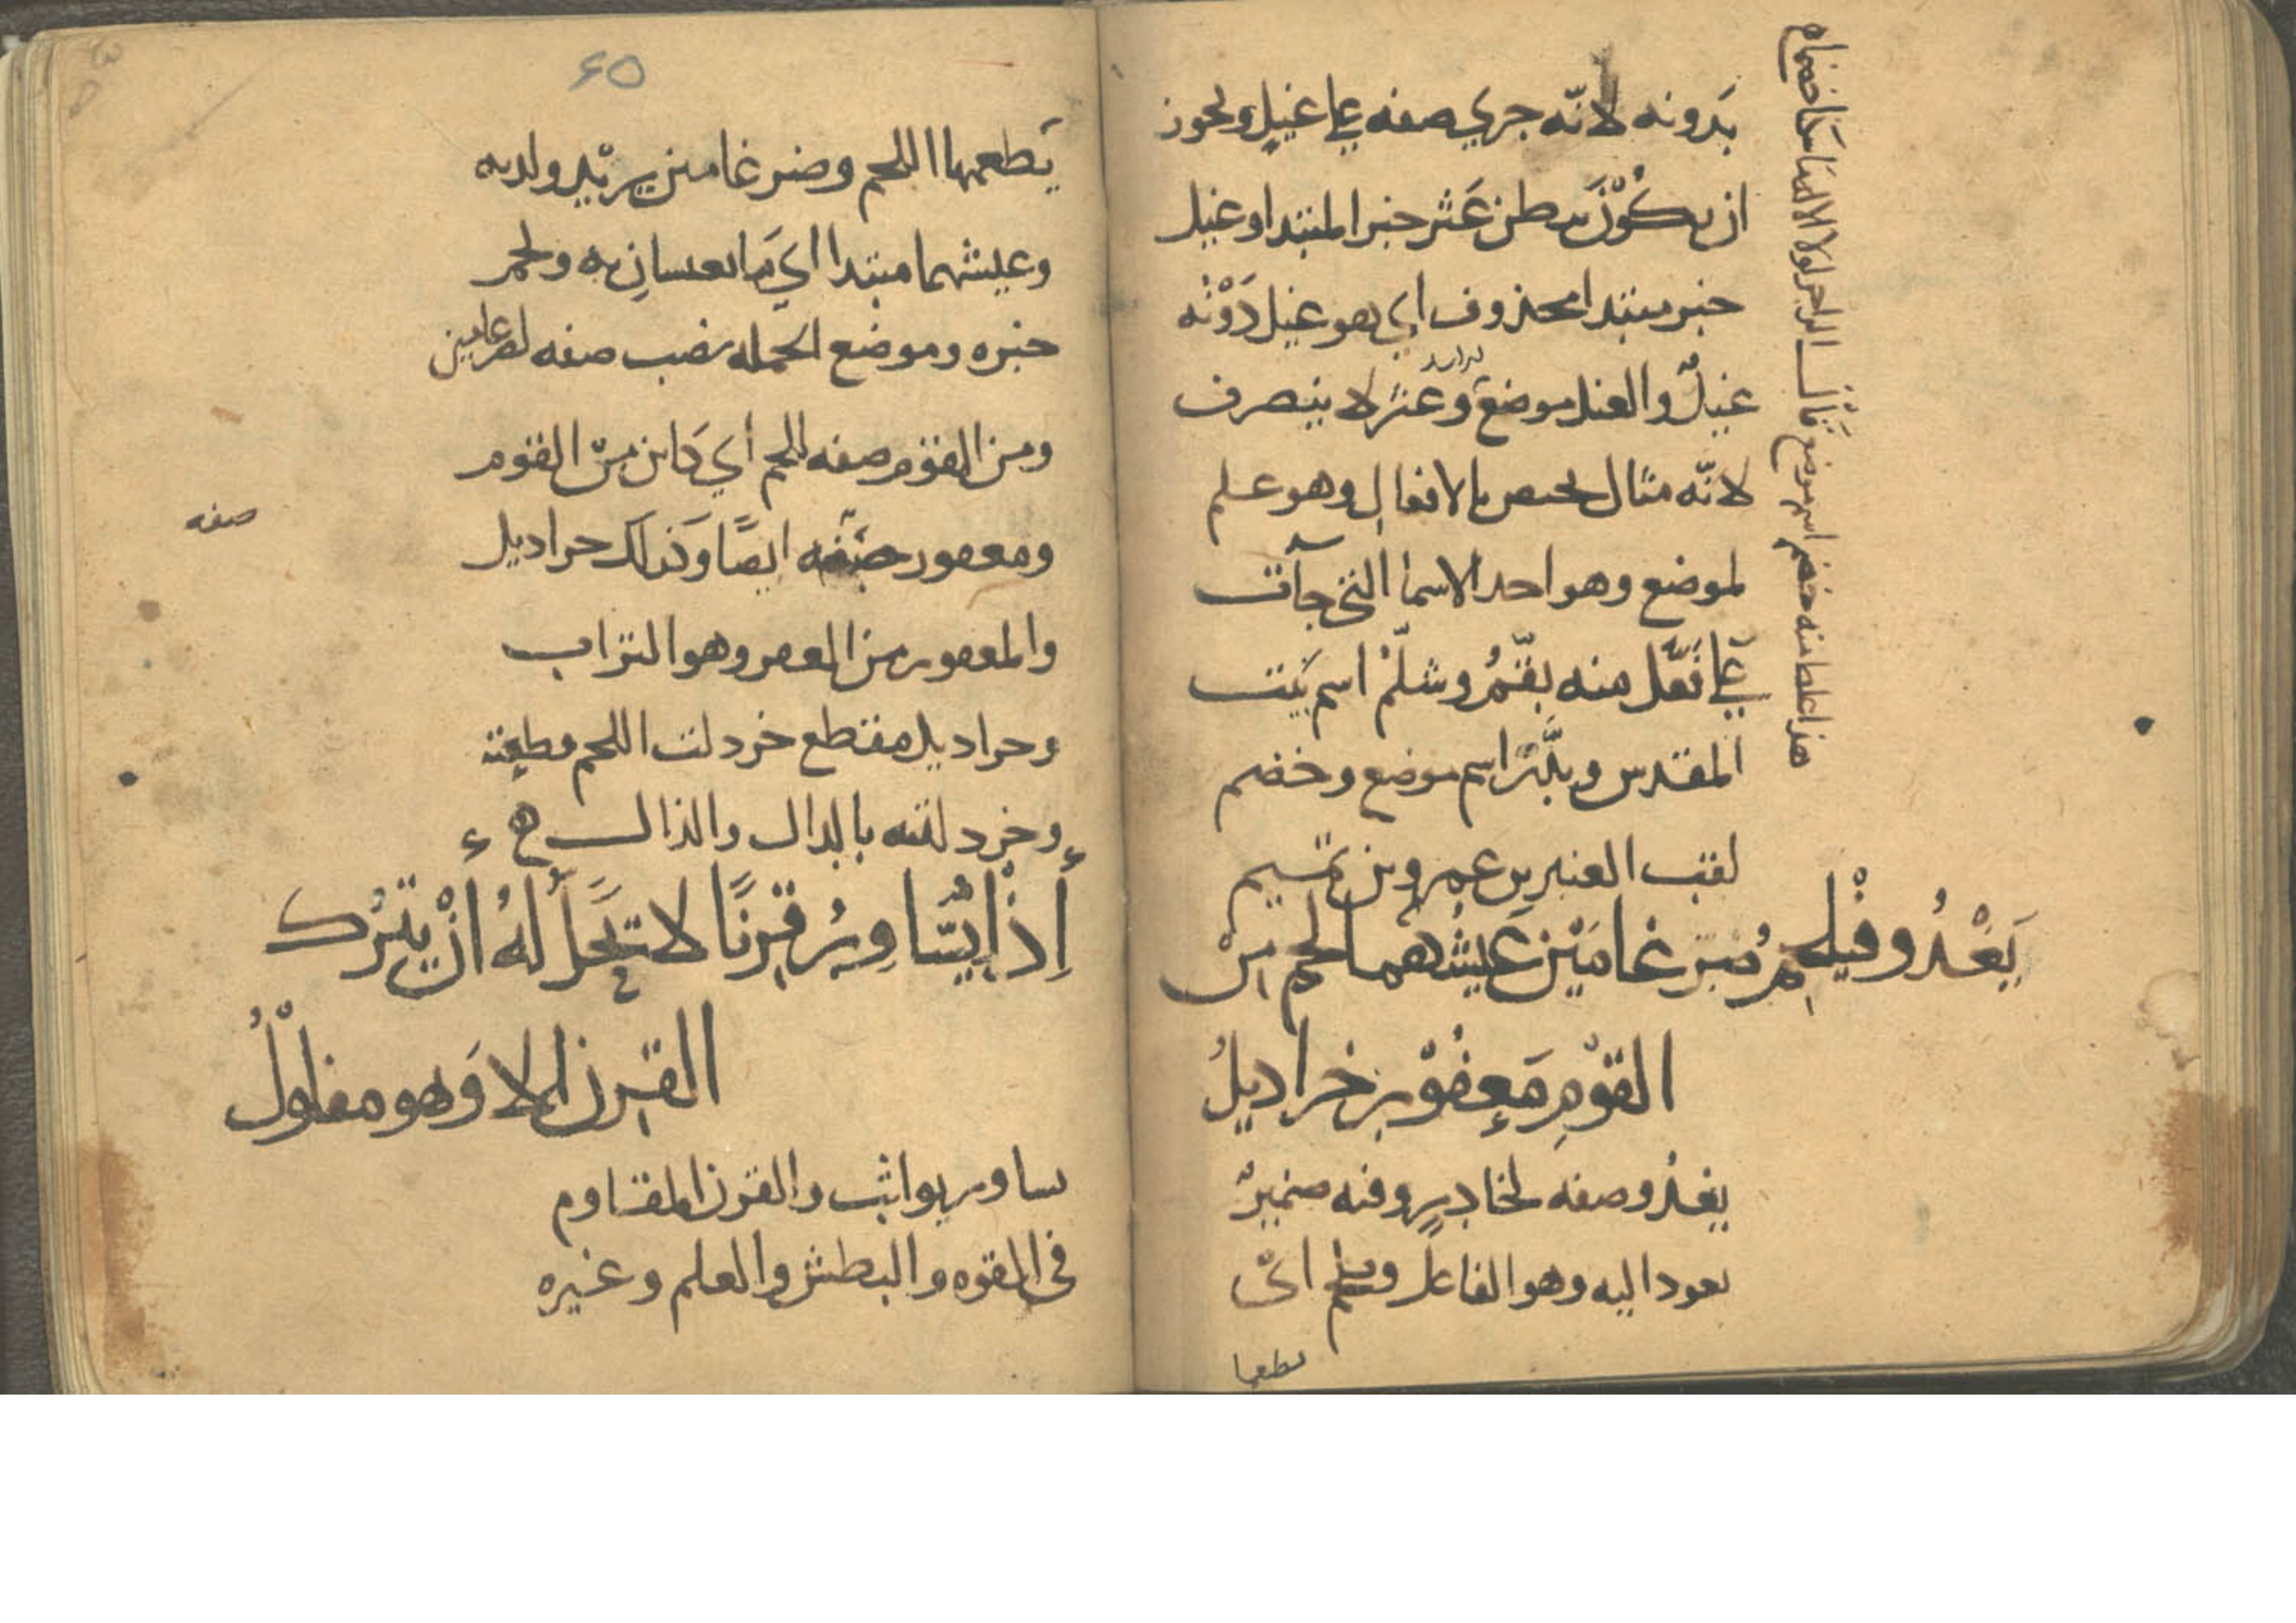 بدونه لانّه جري صفه علي غيل ويحوز
ان يكُوْنَ ببطن عَثّر خبر المبتدا وغيل
خبر مبتدا محذوف اي هو غيل دَوْنُه
غيلٌ والغيل موضع وعثر لا ينصرف
لانّه مثال يختص بالافعال وهو علم
لموضع وهو احد الاسما التي جآت
علي فَعَّل منه بقّمُ وشلّمْ اسم بَيت
المقدس وبذَّر اسم موضع وخضم
لقب العنبر بن عمرو بن تميم
يَغْدُو فيُلْحِمُ ضِرغامَيْن عَيشُهما لحم مِنْ
القوْمِ مَعفُوْر خراديلُ
يغدُو صفه لخادرٍ وفيه ضميرٌ
يعود اليه وهو الفاعل ويلحم ايْ
يطعمها
هذا غلط منه خضم اسم موضع قَالَ الراجز لولا الاله ما سكنا خضما
٤٥
يَطعمها اللحم وضرغامين يريْد ولديه
وعيشهما مبتدا اي مَا يعيسانِ به ولحم
خبره وموضع الجمله نصب صفه لضرغامين
ومن القوْم صفه للحم أي كَاين مِنْ القوم
ومعفور صفه ايضًا وَكذلك خراديل
صفه
والمعفور من العفر وهو التراب
وخراديل مقطع خردلت اللحم قطعته
وخردلته بالدال والذال
إذْا يُسَاوِرُ قِرنًا لا تحَلُّ لهُ أنْ يتْرُك
القِرن الا وَهو مفلوْلُ
يساور يواثب والقرن المقاوم
فى القوه والبطش والعلم وغيره